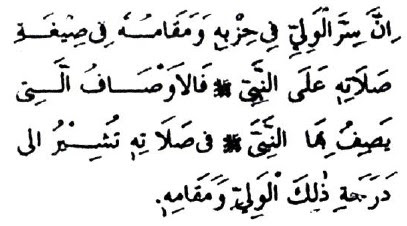 اِنَّ سِرَّ الْوَلِيِّ فِي حِزْبِهِ وَمَقَامُهُ فِى صِيْغَةِ
صَلَاتِهِ عَلَى النَّبِيِّ ﷺ فَالاَوْصَافُ الَّتِى
يَصِفُ بِهَا النَّبِيَّ ﷺ فى صَلَاتِهِ تُشِيْرُ الى
دَرَجَةِ ذٰلِكَ الْوَلِيِّ وَمَقَامِهِ.